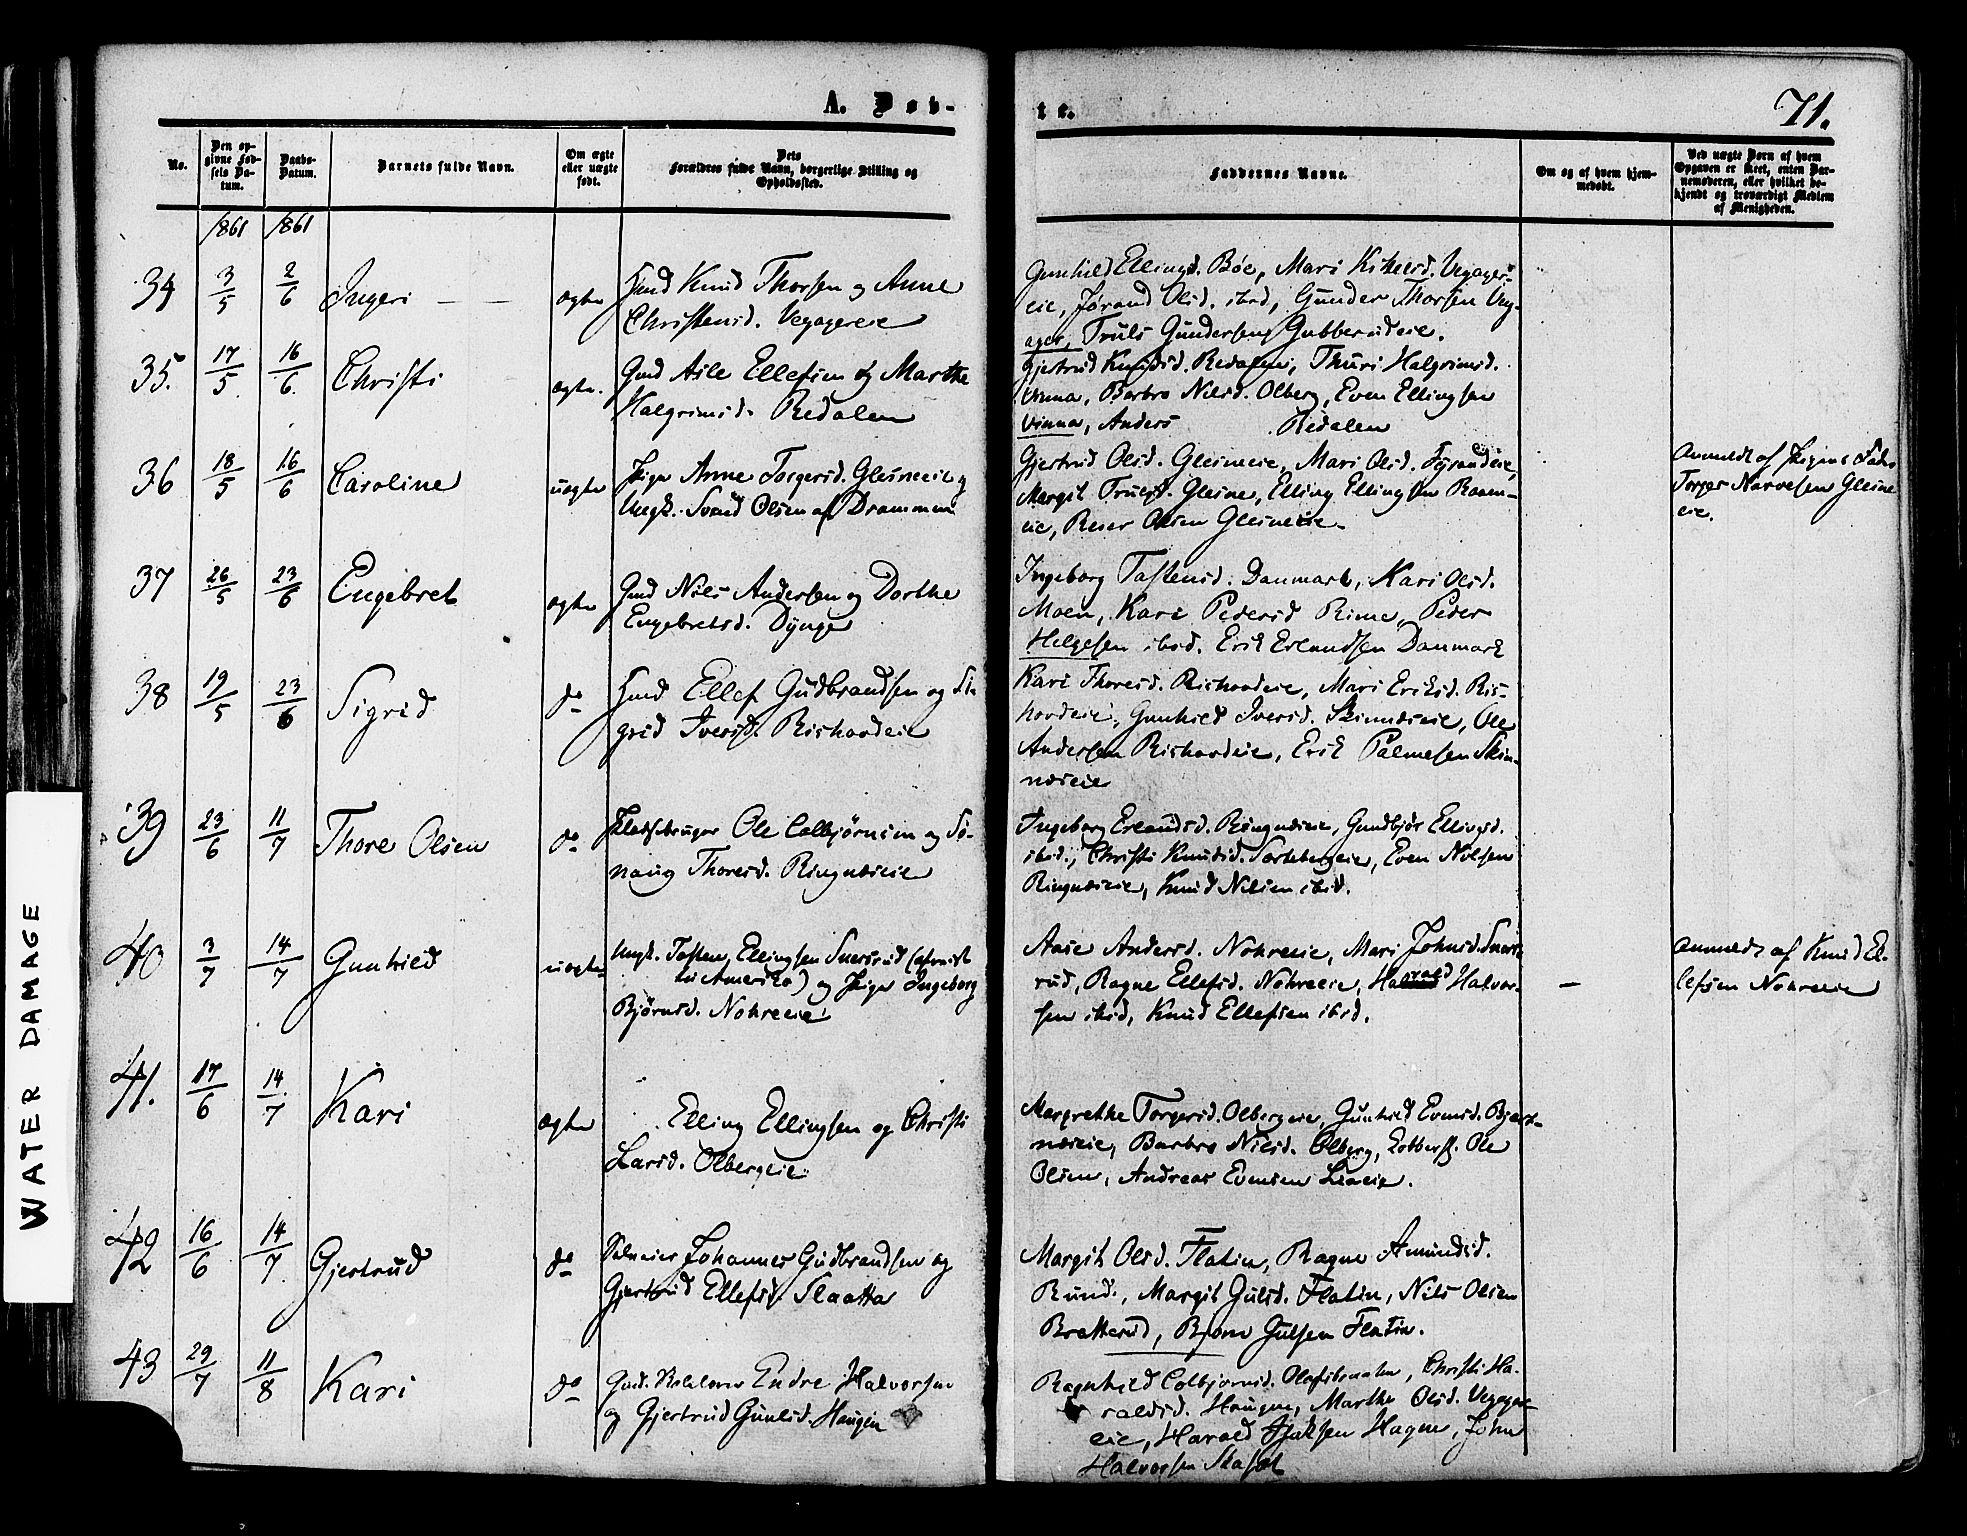 A. Døb-
te.
71.
No.
Den op-
givne Fød-
sels Da-
tum.
Daabs-
Datum.
Barnets fulde Navn.
Om ægte
eller uægte
født.
Dets
Forældres fulde Navn, borgerlige Stilling og
Opholdssted.
Faddernes Navne.
Om og af hvem hjem-
medøbt.
Ved uægte Børn af hvem
Opgaven er skeet, enten Bar-
nemoderen, eller hvilket be-
kjendt og troværdigt Medlem
af Menigheden.
1861 1861
34 3/5 2/6 Ingeri — — ægte Gmd Knud Thorsen og Anne
Christensd. Vegagereie
Gunhild Ellingsd. Bøe, Mari Kittelsd. Vegager-
eie, Jørand Olsd. ibid, Gunder Thorsen Veg-
ager, Truls Gundersen Gubberudeie.
35. 17/5 16/6 Christi ægte. Gmd Asle Ellefsen og Marthe
Halgrimsd. Redalen
Gjertrud Knudsd. Redalen, Thuri Halgrimsd.
Vinna, Barbro Nilsd. Olberg, Even Ellingsen
Vinna, Anders Redalen
36 18/5 16/6 Caroline uægte Pige Anne Torgersd. Glesneeie og
Ungk. Svend Olsen af Drammen
Gjertrud Olsd. Glesneeie, Mari Olsd. Fyrandeie,
Margit Trulsd. Glesne, Elling Ellingsen Roen-
eie, Reier Olsen Glesneeie.
Anmeldt af Pigens Fader
Torger Narvesen Glesne
eie.
37 26/5 23/6 Engebret ægte Gmd Nils Andersen og Dorthe
Engebretsd. Dynge
Ingeborg Tostensd. Danmark, Kari Olsd.
Moen, Kari Pedersd Rime, Peder
Helgesen ibid. Erik Erlandsen Danmark
38 19/5 23/6 Sigrid do Hmd Ellef Gudbrandsen og Si-
grid Iversd. Rishovdeie
Kari Thoresd. Rishovdeie, Mari Eriksd. Ris-
hovdeie, Gunhild Iversd. Skinneseie, Ole
Andersen Rishovdeie, Erik Palmesen Skin-
neseie
39 23/6 11/7 Thore Olsen do Pladsbruger Ole Colbjørnsen og So-
naug Thoresd. Ringneseie
Ingeborg Erlandsd. Ringneseie, Gundbjør Ellingsd.
ibid., Christi Knudsd. Sortebergeie, Even Nilsen
Ringneseie, Knud Nilsen ibid.
40 3/7 14/7 Gunhild uægte Ungk. Tosten Ellingsen Snersrud (afreist
til Amerika) og Pige Ingeborg
Bjørnsd. Nohreeie
Aase Andersd. Nohreeie, Mari Johnsd. Sners-
rud, Ragne Ellefsd. Nohreeie, Harald Halvor-
sen ibid, Knud Ellefsen ibid.
—
Anmeldt af Knud El-
lefsen Nohreeie
41. 17/6 14/7 Kari ægte Elling Ellingsen og Christi
Larsd. Olbergeie.
Margrethe Torgersd. Olbergeie, Gunhild Evensd. Bjert-
neseie, Barbro Nilsd. Olberg, Ole
Olsen, Andreas Evensen Lieeie.
42 16/6 14/7 Gjertrud do Selveier Johannes Gudbrandsen og
Gjertrud Ellefsd. Slaatta
Margit Olsd. Flatin, Ragne Amundsd.
Rund., Margit Gulsd. Flatin, Nils Olsen
Bratterud, Bjørn Gulsen Flatin.
43 29/7 11/8 Kari do Endre Halvorsen
og Gjertrud Gunlsd. Haugen
Ragnhild Colbjørnsd. Olafsbraaten, Christi Ha-
raldsd. Haugen, Marthe Olsd. Vegager-
eie, Harald Hagen, John
Halvorsen
WATER DAMAGE